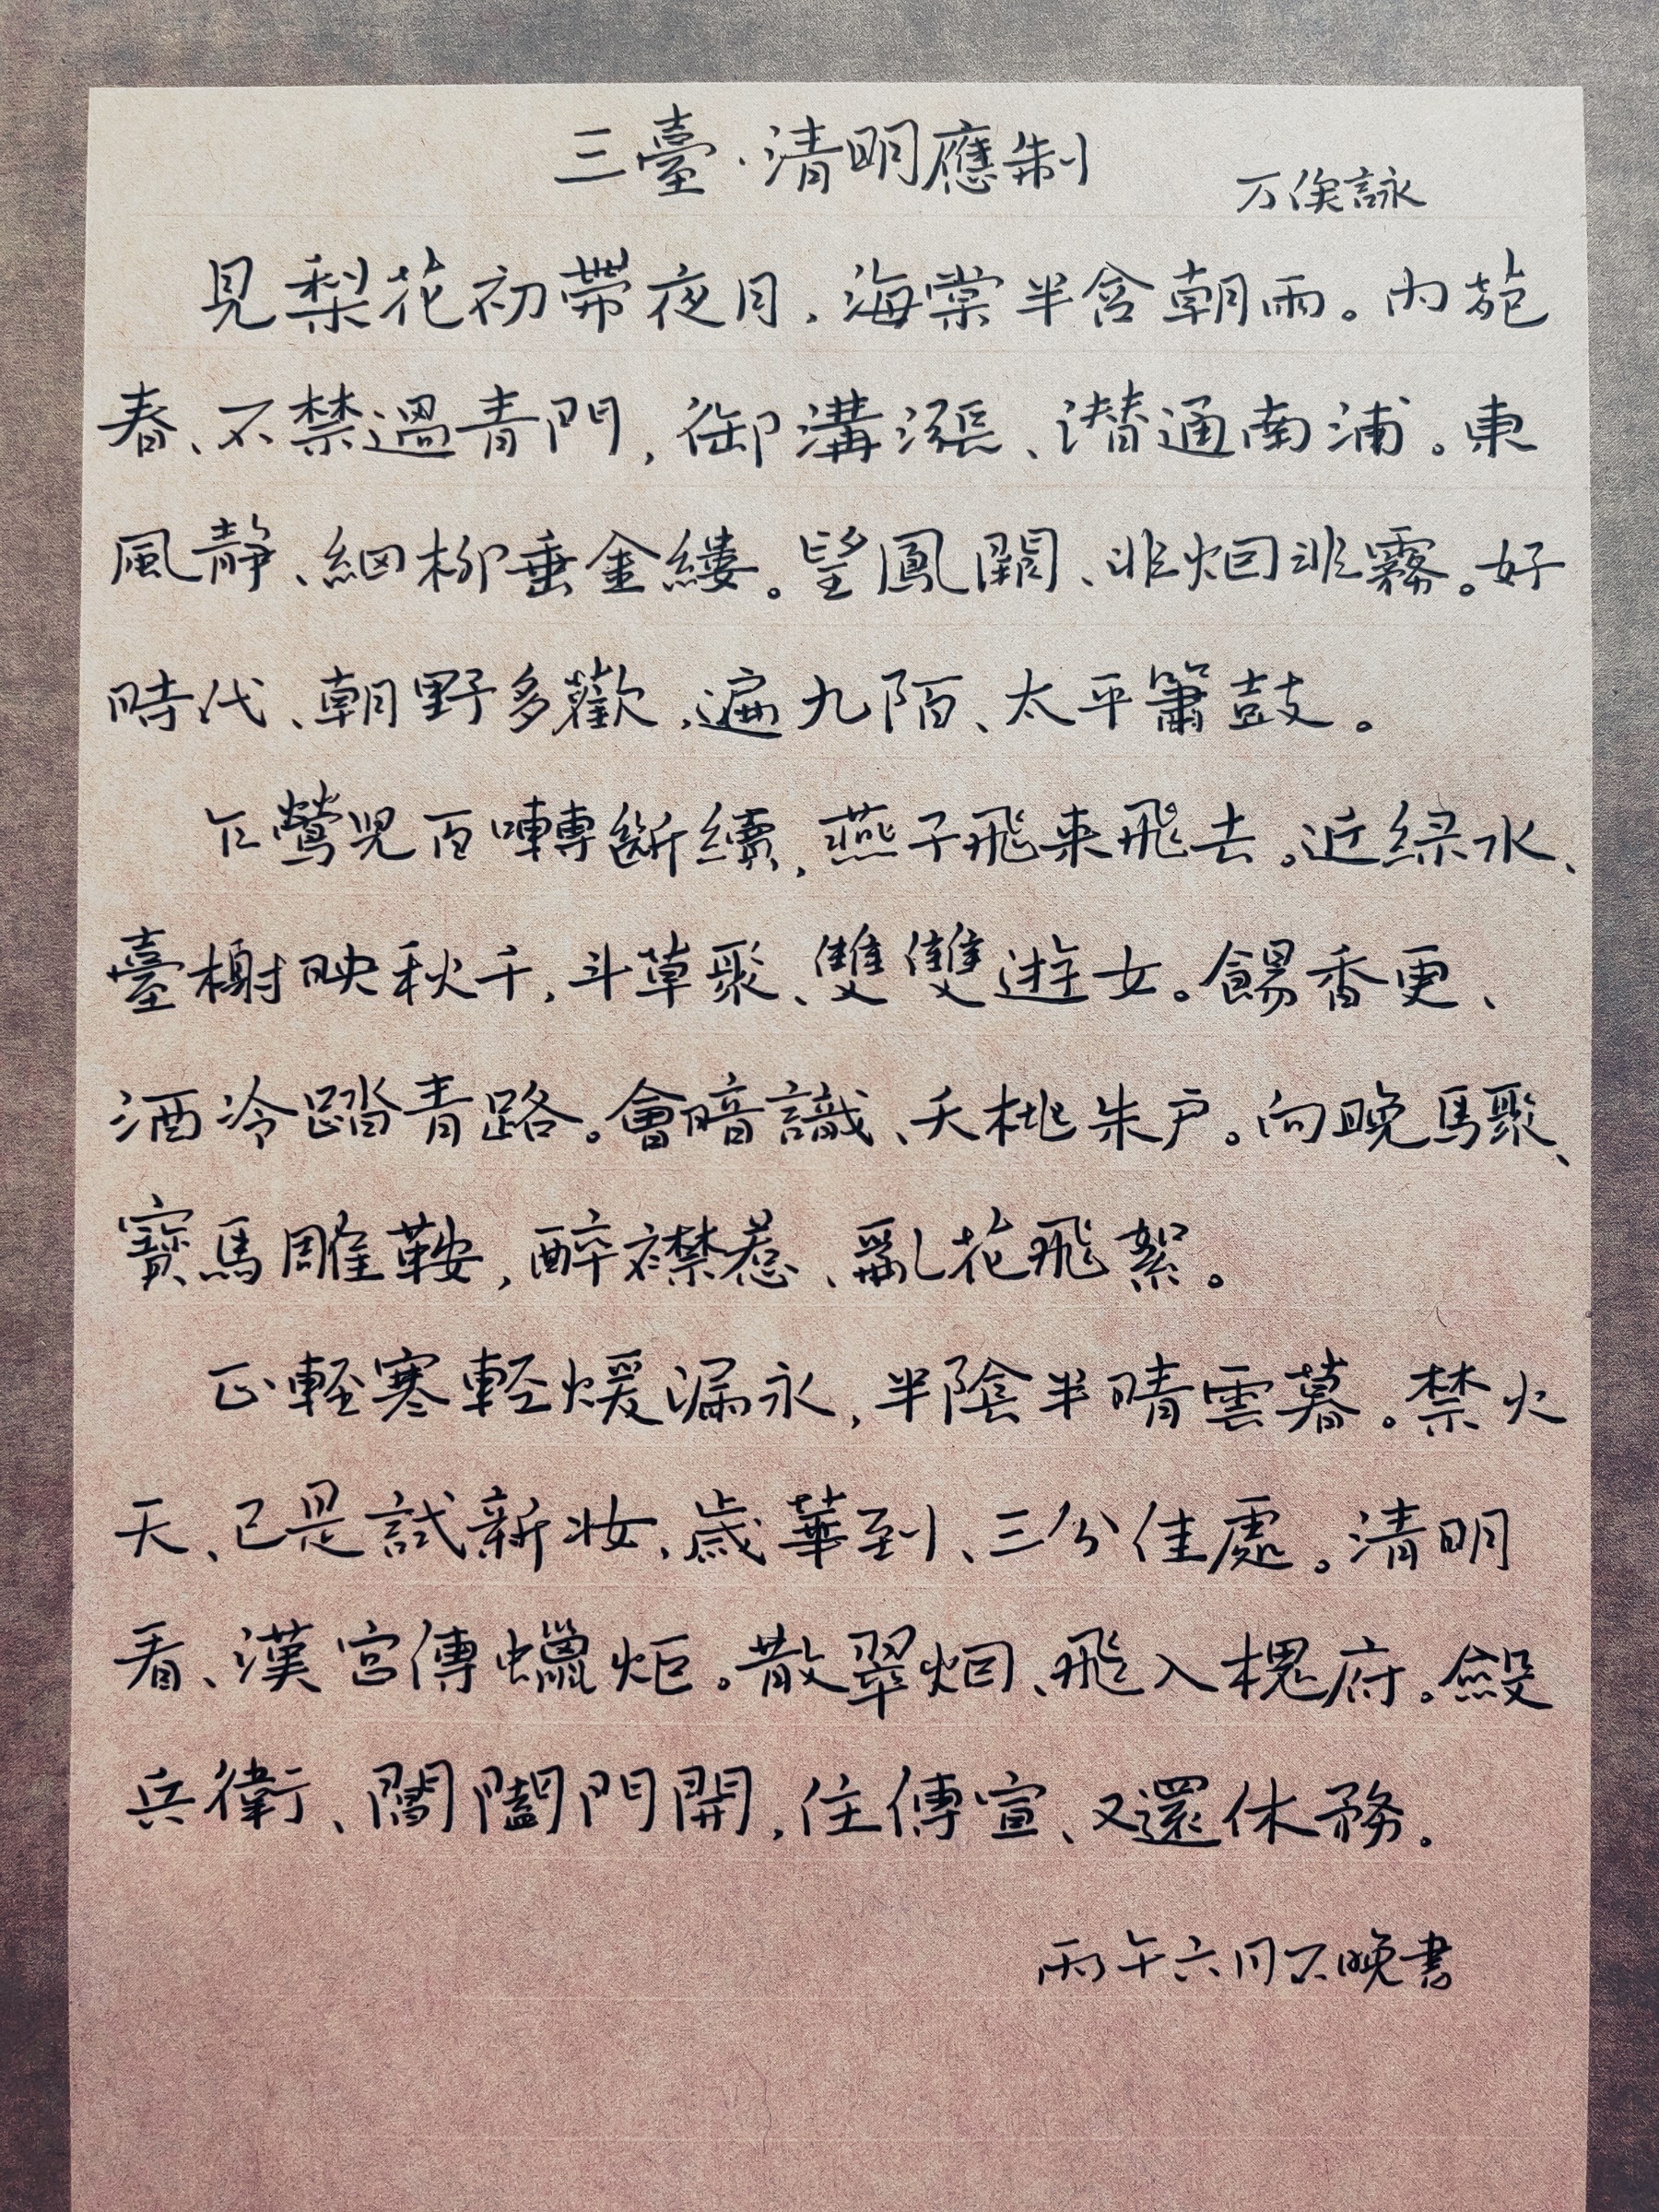 三臺·清明應制
万俟詠
見梨花初帶夜月，海棠半含朝雨。内苑
春、不禁過青門，御溝漲、潜通南浦。東
風静、細柳垂金縷。望鳳闕、非烟非霧。好
時代、朝野多歡，遍九陌、太平簫鼓。
乍鶯兒百囀斷續，燕子飛來飛去。近緑水、
臺榭映秋千，斗草聚、雙雙遊女。餳香更、
酒冷踏青路。會暗識、夭桃朱户。向晚馬聚、
寶馬雕鞍，醉襟惹、亂花飛絮。
正輕寒輕煖漏永，半陰半晴雲暮。禁火
天、已是試新妝，歲華到、三分佳處。清明
看、漢宫傳蠟炬。散翠烟、飛入槐府。斂
兵衛、閶闔門開，住傳宣、又還休務。
丙午六月不晚書